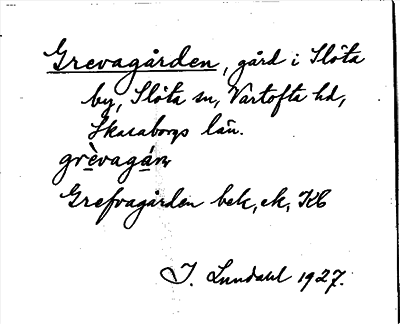 Grevagården, gård i Slöta
by, Slöta sn, Vartofta hd,
Skaraborgs län.
grèvagán
Grefvagården bek, ek, KB
I. Lundahl 1927.